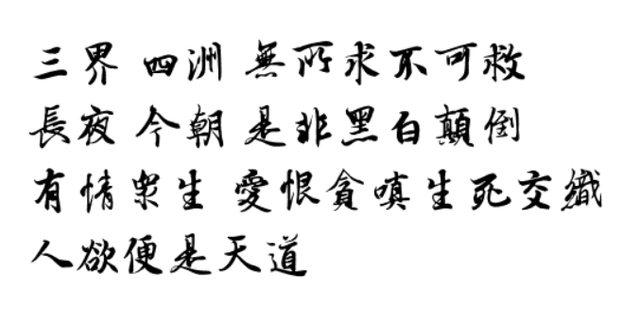 三界 四洲 無所求不可救
長夜 今朝 是非黑白顛倒
有情眾生 愛恨貪嗔生死交織
人欲便是天道